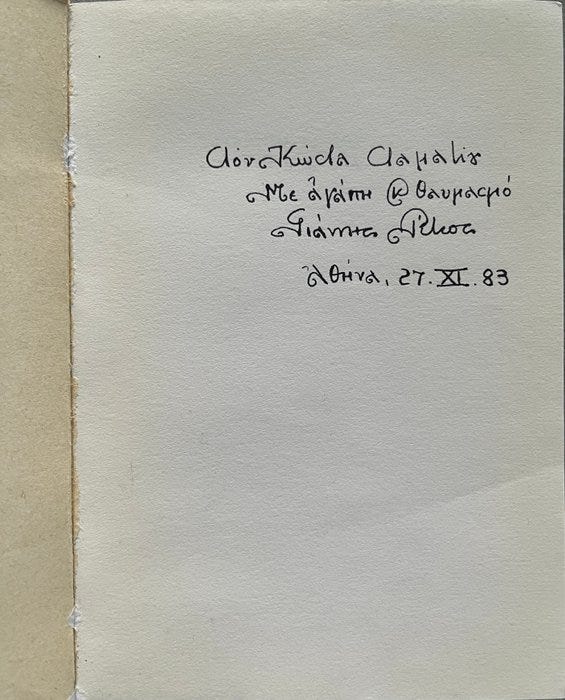 Στόν Κώστα Σταματίου
Με ἀγάπη κ θαυμασμό
Γιάννης Ρίτσος
Ἀθήνα, 27.XI.83